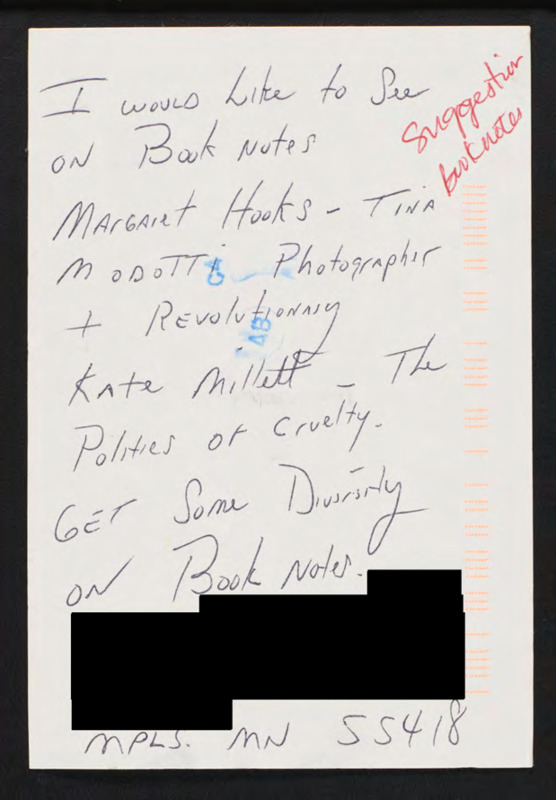 I would like to see
on Book Notes
Margaret Hooks - Tina
Modotti Photographer
+ Revolutionary
Kate Millett - The
Politics of Cruelty.
Get Some Diversity
on Book Notes.
MPLS. MN 55418
Suggestion
booknotes